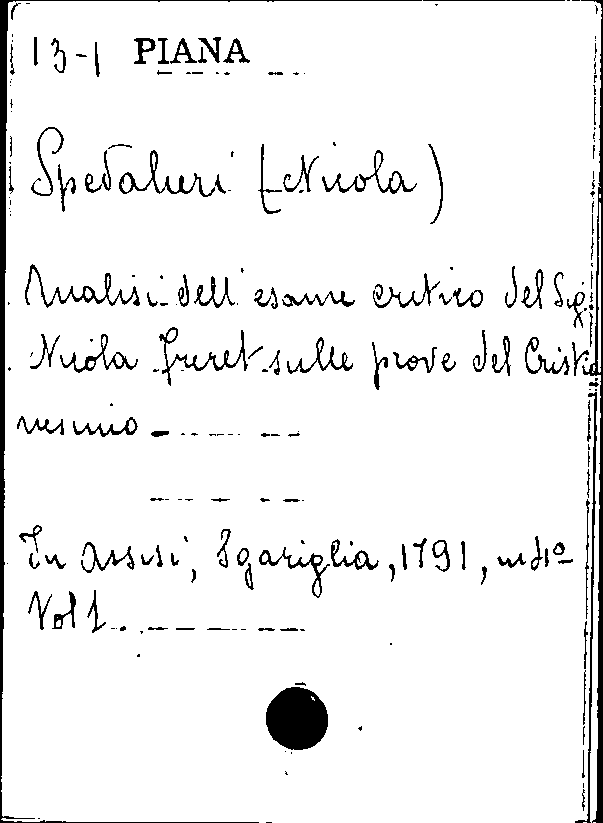 13-1 PIANA
Spedalieri (Nicola)
Analisi dell'esame critico del Sig.
Nicola Freret sulle prove del Cristia
nesimo
In Assisi, Sgariglia, 1791, in 4º
Vol 1.